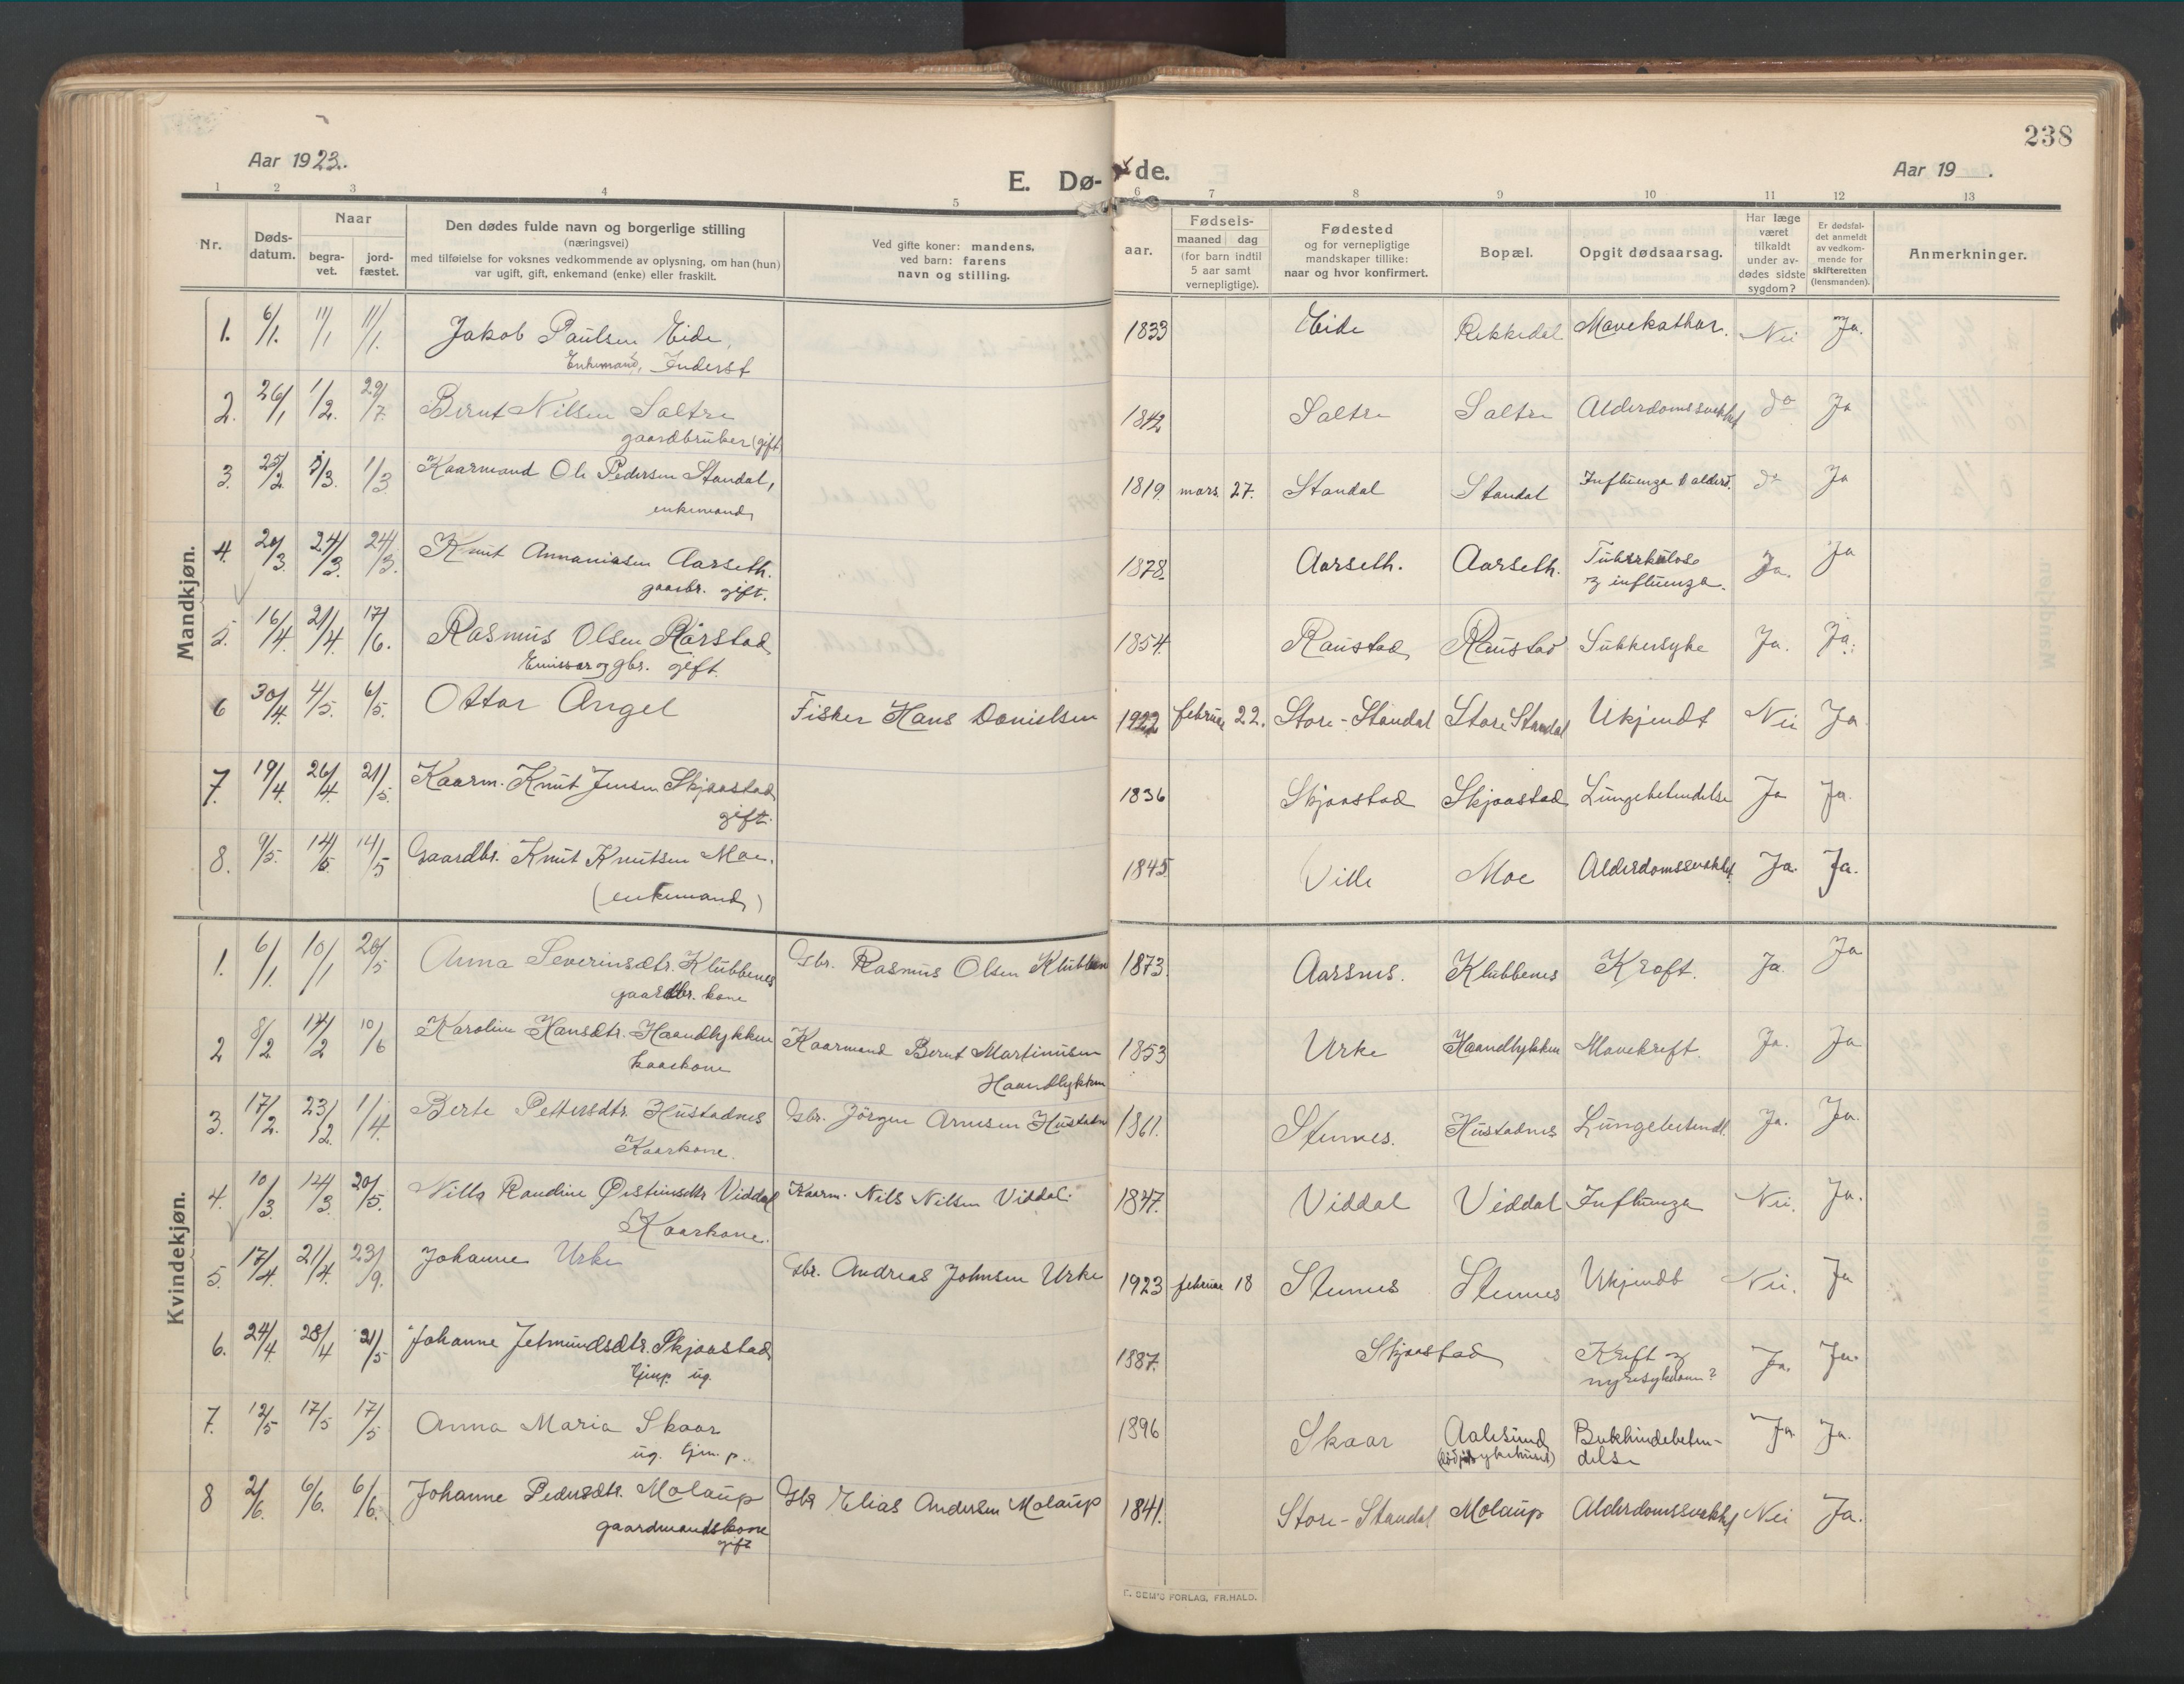 238
Aar 1923.
E. Dø-
de.
Aar 19 .
1 2 3 4 5 6 7 8 9 10 11 12 13
Nr.
Døds-
datum.
Naar
begra-
vet.
jord-
fæstet.
Den dødes fulde navn og borgerlige stilling
(næringsvei)
med tilføielse for voksnes vedkommende av oplysning, om han (hun)
var ugift, gift, enkemand (enke) eller fraskilt.
Ved gifte koner: mandens,
ved barn: farens
navn og stilling.
aar.
Fødsels-
maaned dag
(for barn indtil
5 aar samt
vernepligtige).
Fødested
og for vernepligtige
mandskaper tillike:
naar og hvor konfirmert.
Bopæl.
Opgit dødsaarsag.
Har læge
været
tilkaldt
under av-
dødes sidste
sygdom?
Er dødsfal-
det anmeldt
av vedkom-
mende for
skifteretten
(lensmanden).
Anmerkninger.
Mandkjøn.
1. 6/1. 11/1 11/1. Jakob Paulsen Eide, 1833 Eide Rekkedal Mavekathar. Nei Ja.
Enkemand, Inderst
2. 26/1 1/2. 29/7. Bernt Nilsen Saltre 1842 Saltre Saltre Alderdomssvakhet do Ja
gaardbruker (gift)
3. 25/2 5/3. 1/3 Kaarmand Ole Pedersen Standal, 1819. mars 27. Standal Standal Influenza & alderd. do Ja
enkemand
4. 20/3. 24/3. 24/3. Knut Annaniasen Aarseth. 1878. Aarseth. Aarseth. Tuberkulose Ja. Ja
gaarbr. gift. og influenza.
5. 16/4. 21/4. 17/6. Rasmus Olsen Rørstad 1854. Raustad Raustad Sukkersyke Ja. Ja.
Emissær og gbr. gift.
6 30/4. 4/5. 6/5. Ottar Angel Fisker Hans Danielsen 1922 februar 22. Store-Standal Store Standal Ukjendt Nei Ja
7. 19/4. 26/4. 21/5. Kaarm. Knut Jensen Skjaastad 1836 Skjaastad Skjaastad Lungebetendelse Ja Ja.
gift.
8. 9/5. 14/5. 14/5 Gaardbr. Knut Knutsen Moe. 1845 Ville Moe Alderdomssvakhet Ja. Ja.
(enkemand)
Kvindekjøn.
1. 6/1. 10/1 20/5 Anna Severinsdtr. Klubbenes Gbr. Rasmus Olsen Klubben 1873. Aarsnes. Klubbenes Kreft. Ja. Ja
gaardbr. kone
2 8/2. 14/2 10/6 Karoline Hansdtr. Haandlykken Kaarmand Bernt Martinusen 1853 Urke Haandlykken Mavekreft. Ja. Ja
kaarkone Haandlykken
3. 17/2. 23/2. 1/4. Berte Pettersdtr. Hustadnes Gbr. Jørgen Arnesen Hustadn 1861. Stennes. Hustadnes Lungebetendl. Ja. Ja.
Kaarkone.
4. 10/3. 14/3. 20/5. Nilla Randine Øisteinsdtr Viddal Kaarm. Nils Nilsen Viddal. 1847. Viddal Viddal Influenza Nei. Ja.
Kaarkone.
5. 17/4. 21/4. 23/9. Johanne Urke Gbr. Andreas Johnsen Urke 1923 februar 18 Stennes Stennes Ukjendt Nei. Ja
6. 24/4. 28/4 21/5 Johanne Jetmundsdtr. Skjaastad 1887. Skjaastad Kreft og Ja. Ja.
tjenp. ug. nyresykdom?
7. 12/5 17/5 17/5 Anna Maria Skaar 1896 Skaar Aalesund Bukhindebeten- Ja Ja.
ug. tjen. p. delse
8 2/6. 6/6. 6/6. Johanne Pedersdtr. Molaup Gbr Elias Andersen Molaup 1841. Store-Standal Molaup Alderdomssvakhet Nei Ja.
gaardmandskone
gift
FORLAG, FR. HALD.